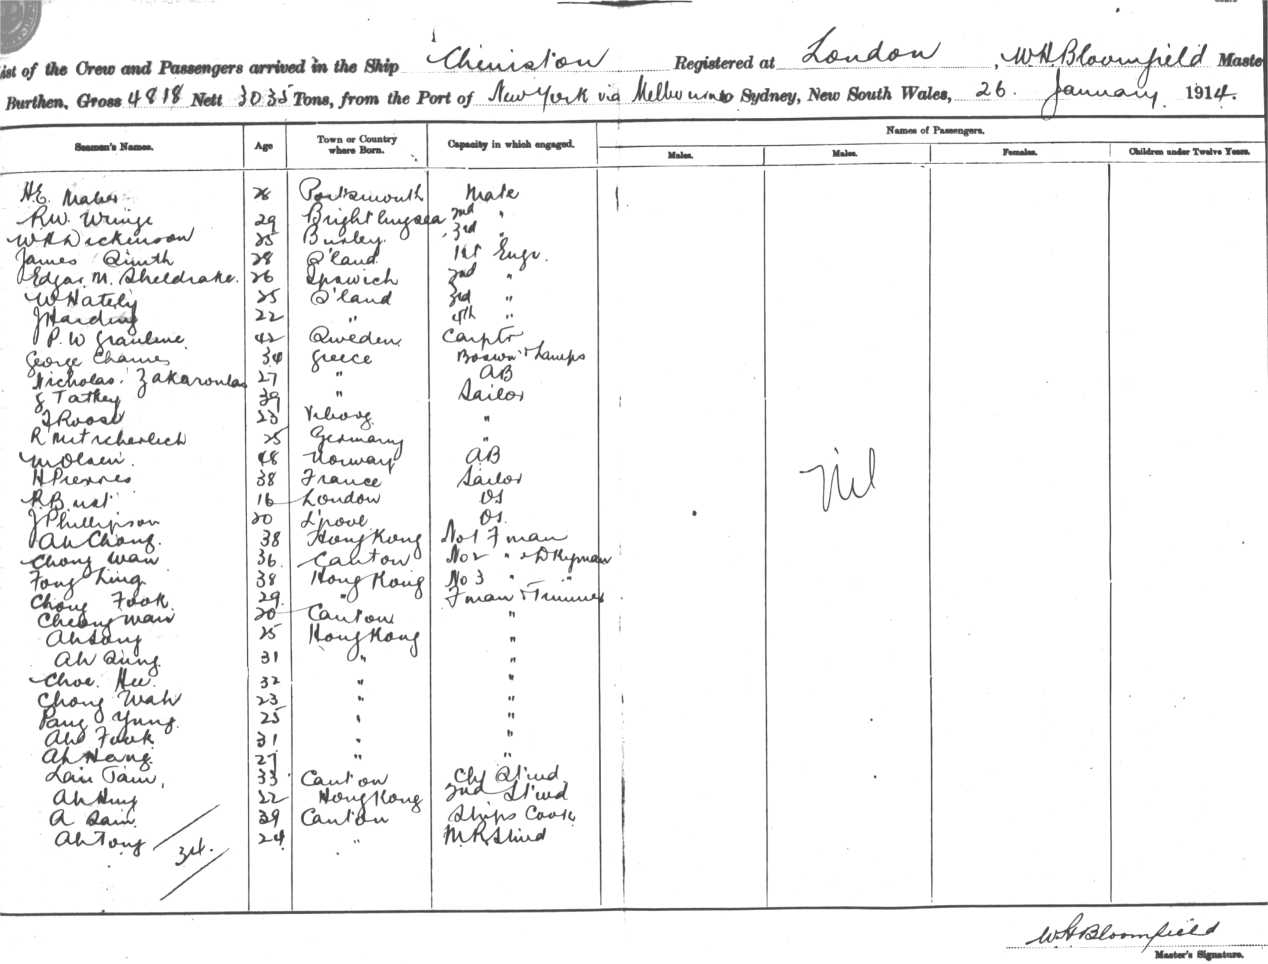 List of the Crew and Passengers arrived in the Ship Cheniston Registered at London, W.H. Bloomfield Master
Burthen, Gross 4818 Nett 3035 Tons, from the Port of New York via Melbourne to Sydney, New South Wales, 26. January 1914.
Seamen's Names. Age Town or Country where Born. Capacity in which engaged. Names of Passengers.
Males. Males. Females. Children under Twelve Years.
H.E. 26 Portsmouth Mate
R.W. Wringe 29 Brightlingsea 2nd "
W H Dickinson 25 Burley 3rd "
James Smith 28 S'land 1st Engr.
Edgar. M. Sheldrake. 26 Ipswich 2nd "
W Hately 25 S'land 3rd "
J Harding 22 " 4th "
P. W 42 Sweden Carptr
George 34 Greece Boswn & Lamps
Nicholas. Zakaroulas 27 " AB
39 " Sailor
23 "
R Mitscherlich 25 Germany "
M Olsen. 48 Norway AB
H 38 France Sailor
R. 16 London OS
J Phillipson 20 L'pool OS.
Ah Chong. 38 Hong Kong No 1 Fman
Chong Wan 36. Canton No 2 " & Dkyman
Fong Ling. 38 Hong Kong No 3 " — "
Chong Fook. 29. " Fman & Trimmer
Cheong Wan 20 Canton "
Ah 25 Hong Kong "
Ah Sung. 31 " "
Choe. Hee. 32 " "
Chong Wah 23 " "
Pang Yung. 25 " "
Ah Fook 31 " "
Ah Hang. 27 " "
Tam. 33 Canton Chf St'wd
Ah 22 Hong Kong 2nd St'wd
A Sam. 39 Canton Ships Cook
Ah Tong 24 " M.R. St'wd
34.
Nil
W H Bloomfield
Master's Signature.